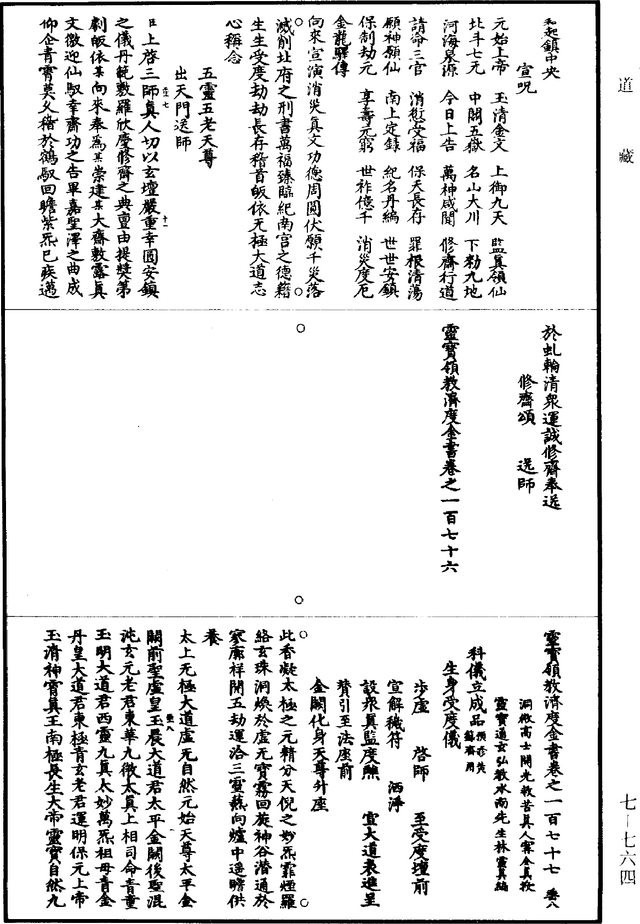 道藏
七—七六四
赤起鎮中央
宣呪
元始上帝　玉清金文　上御九天　監真領仙
北斗七元　中闕五嶽　名山大川　下勑九地
河海泉源　今日上告　萬神咸聞　修齋行道
請命三官　消愆受福　保天長存　罪根清蕩
願神願仙　南上定錄　紀名丹編　世世安鎮
保制劫元　享壽元窮　世祚億千　消災度厄
金龍驛傳
向來宣演消災真文功德周圓伏願千災落
滅削北府之刑書萬福臻臨紀南宮之德籍
生生受度劫劫長存稽首皈依无極大道志
心稱念
五靈五老天尊
出天門送師
具上啓三師真人切以玄壇嚴重幸圓安鎮
之儀丹範敷羅欣慶修齋之典亶由提獎第
劇皈依某向來奉為某崇建某大齋敷露真
文徼迎仙馭幸齋功之告畢嘉聖澤之曲成
仰企青霄莫久稽於鶴馭回瞻紫炁已疾邁
於虬輪清衆運誠修齋奉送
修齋頌　送師
靈寶領教濟度金書卷之一百七十六
靈寶領教濟度金書卷之一百七十七
洞微高士開光救苦真人甯全真授
靈寶通玄弘教水南先生林靈真編
科儀立成品預修黃籙齋用
生身受度儀
步虛　啓師　至受度壇前
宣解穢符　洒淨
設衆真監度醮　宣大道表進呈
贊引至法座前
金闕化身天尊升座
此香凝太極之元精分天倪之妙炁霏煙羅
絡玄珠洞煥於虛无寶霧回旋神谷潛通於
寥廓祥開五劫運洽三靈爇向爐中遥瞻供
養
太上无極大道虛无自然元始天尊太平金
闕前聖虛皇玉晨大道君太平金闕後聖混
沌玄元老君東華九微太真上相司命青童
玉明大道君西靈九真太妙萬炁祖母青金
丹皇大道君東極青玄老君運明保元上帝
玉清神霄真王南極長生大帝靈寶自然九